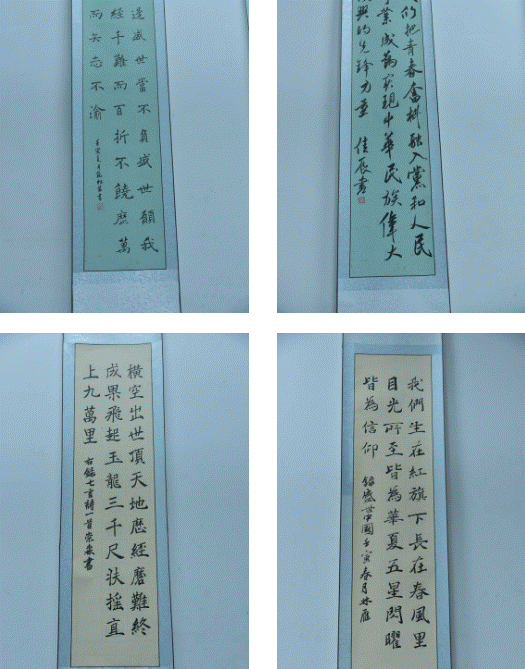 逢盛世當不負盛世願我
經千難而百折不饒歷萬
而矢志不渝
們把青春奮鬥融入黨和人民
業成為實現中華民族偉大
興的先鋒力量
佳辰書
橫空出世頂天地歷經磨難終
成果飛起玉龍三千尺扶搖直
上九萬里
右錄七言詩一首崇
書
我們生在紅旗下長在春風里
目光所至皆為華夏五星閃曜
皆為信仰
錄盛世中國壬寅春月
雁